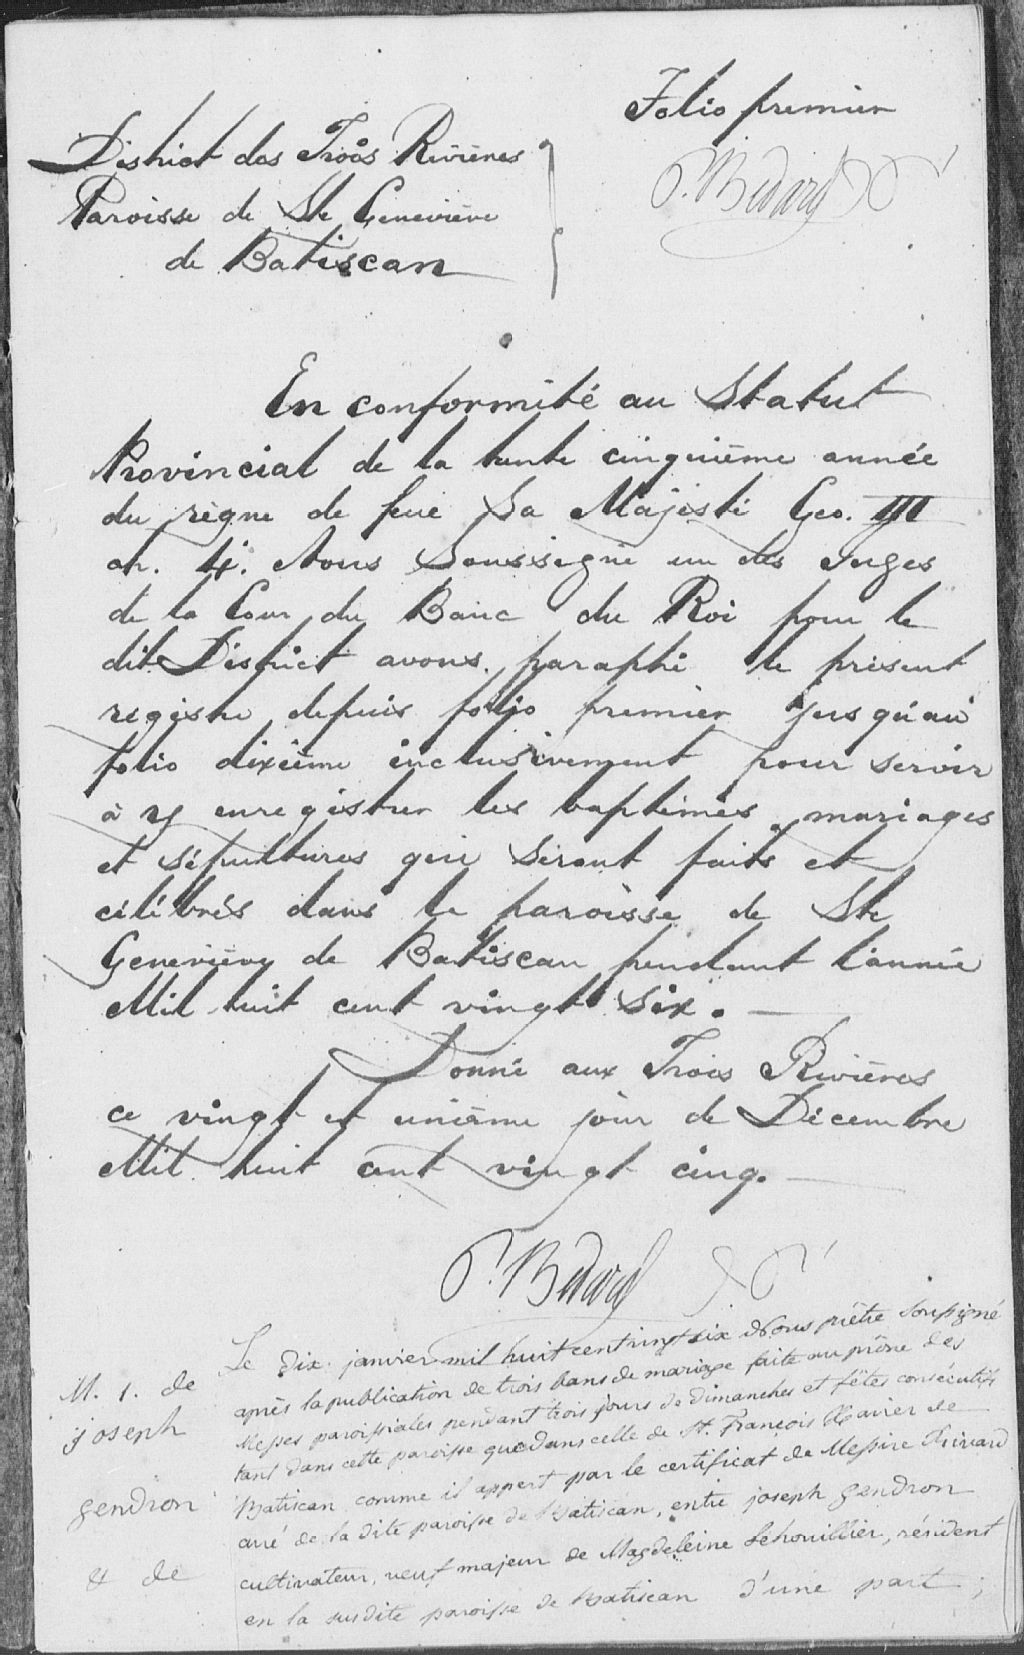 Folio premier
P. Bedard
District des Trois Rivières
Paroisse de Ste Geneviève
de Batiscan
En conformité au Statut
Provincial de la trente cinquième année
du règne de feue Sa Majesté Geo. III
ch. 4. Nous Soussigné un des Juges
de la Cour du Banc du Roi pour le
dit District avons paraphé le présent
registre depuis folio premier jusqu'au
folio dixième inclusivement pour servir
à y enregistrer les baptêmes mariages
et sépultures qui seront faits et
célébrés dans la paroisse de Ste
Geneviève de Batiscan pendant l'année
Mil huit cent vingt six. —
Donné aux Trois Rivières
ce vingt et unième jour de Décembre
Mil huit cent vingt cinq. —
P. Bedard
M. 1. de
joseph
gendron
& de
Le dix janvier mil huit cent vingt six Nous prêtre soussigné
après la publication de trois bans de mariage faite au prône des
Messes paroissiales pendant trois jours de dimanches et fêtes consécutifs
tant dans cette paroisse que dans celle de St. François Xavier de
Batiscan comme il appert par le certificat de Messire Rivard
curé de la dite paroisse de Batiscan, entre joseph gendron
cultivateur, veuf majeur de Magdeleine Lehouillier, résident
en la susdite paroisse de Batiscan d'une part ;